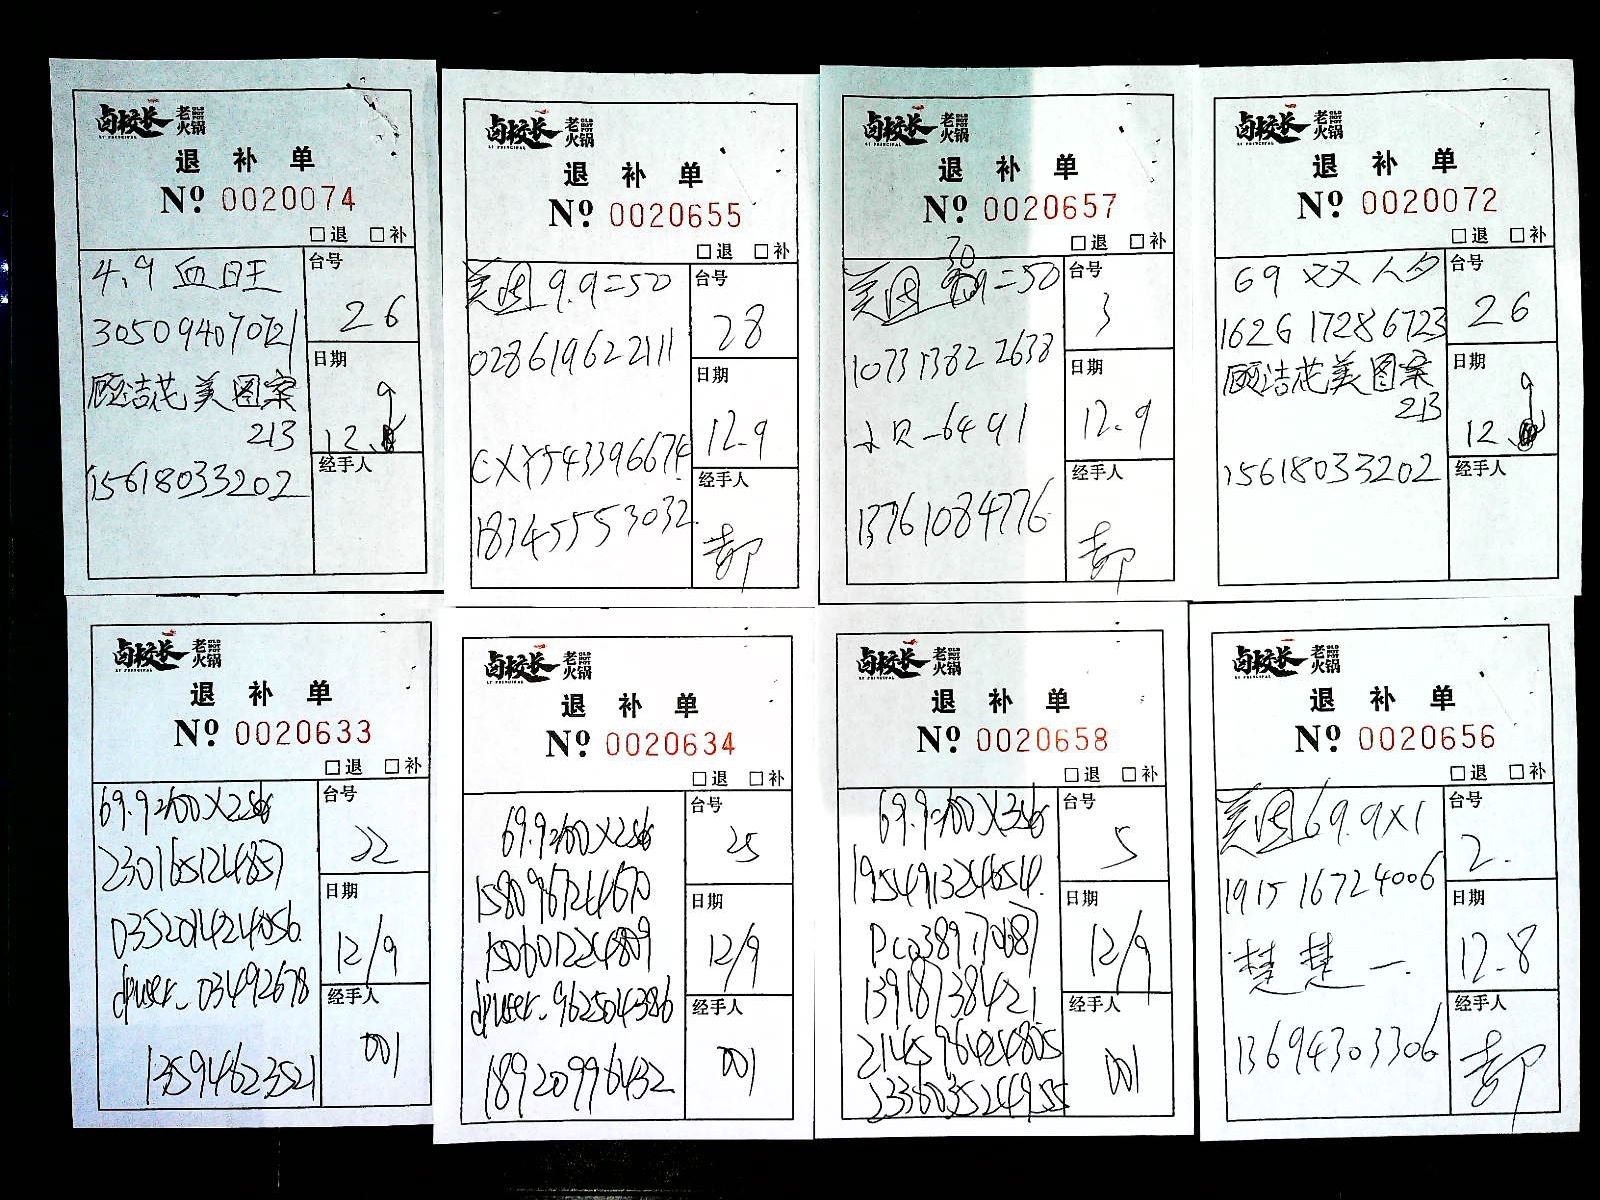 卤校长 老火锅
LU PRINCIPAL
退补单
Nº 0020074
□退 □补
4.9 血旺
305094070721
顾洁花美图案
213
15618033202
台号
26
日期
12.9
经手人
卤校长 老火锅
退补单
Nº 0020655
□退 □补
美团 9.9=50
028619622111
CXY543396674
18345553032
台号
28
日期
12.9
经手人
卤校长 老火锅
退补单
Nº 0020657
□退 □补
美团
=50
107313822638
13761084776
台号
3
日期
12.9
经手人
卤校长 老火锅
退补单
Nº 0020072
□退 □补
69 双人夕
162617286723
顾洁花美图案
213
15618033202
台号
26
日期
12.9
经手人
卤校长 老火锅
退补单
Nº 0020633
□退 □补
69.9=100X2
230165124857
035201424056
dpuser_03492678
13594623521
台号
22
日期
12/9
经手人
001
卤校长 老火锅
退补单
Nº 0020634
□退 □补
69.9=100X2
150601224809
dpuser_9625014386
18920996432
台号
25
日期
12/9
经手人
001
卤校长 老火锅
退补单
Nº 0020658
□退 □补
69.9=100X3
195491324654
13918738421
214596424805
233603524955
台号
5
日期
12/9
经手人
001
卤校长 老火锅
退补单
Nº 0020656
□退 □补
美团69.9X1
191516724006
楚楚一.
13694303306
台号
2.
日期
12.8
经手人